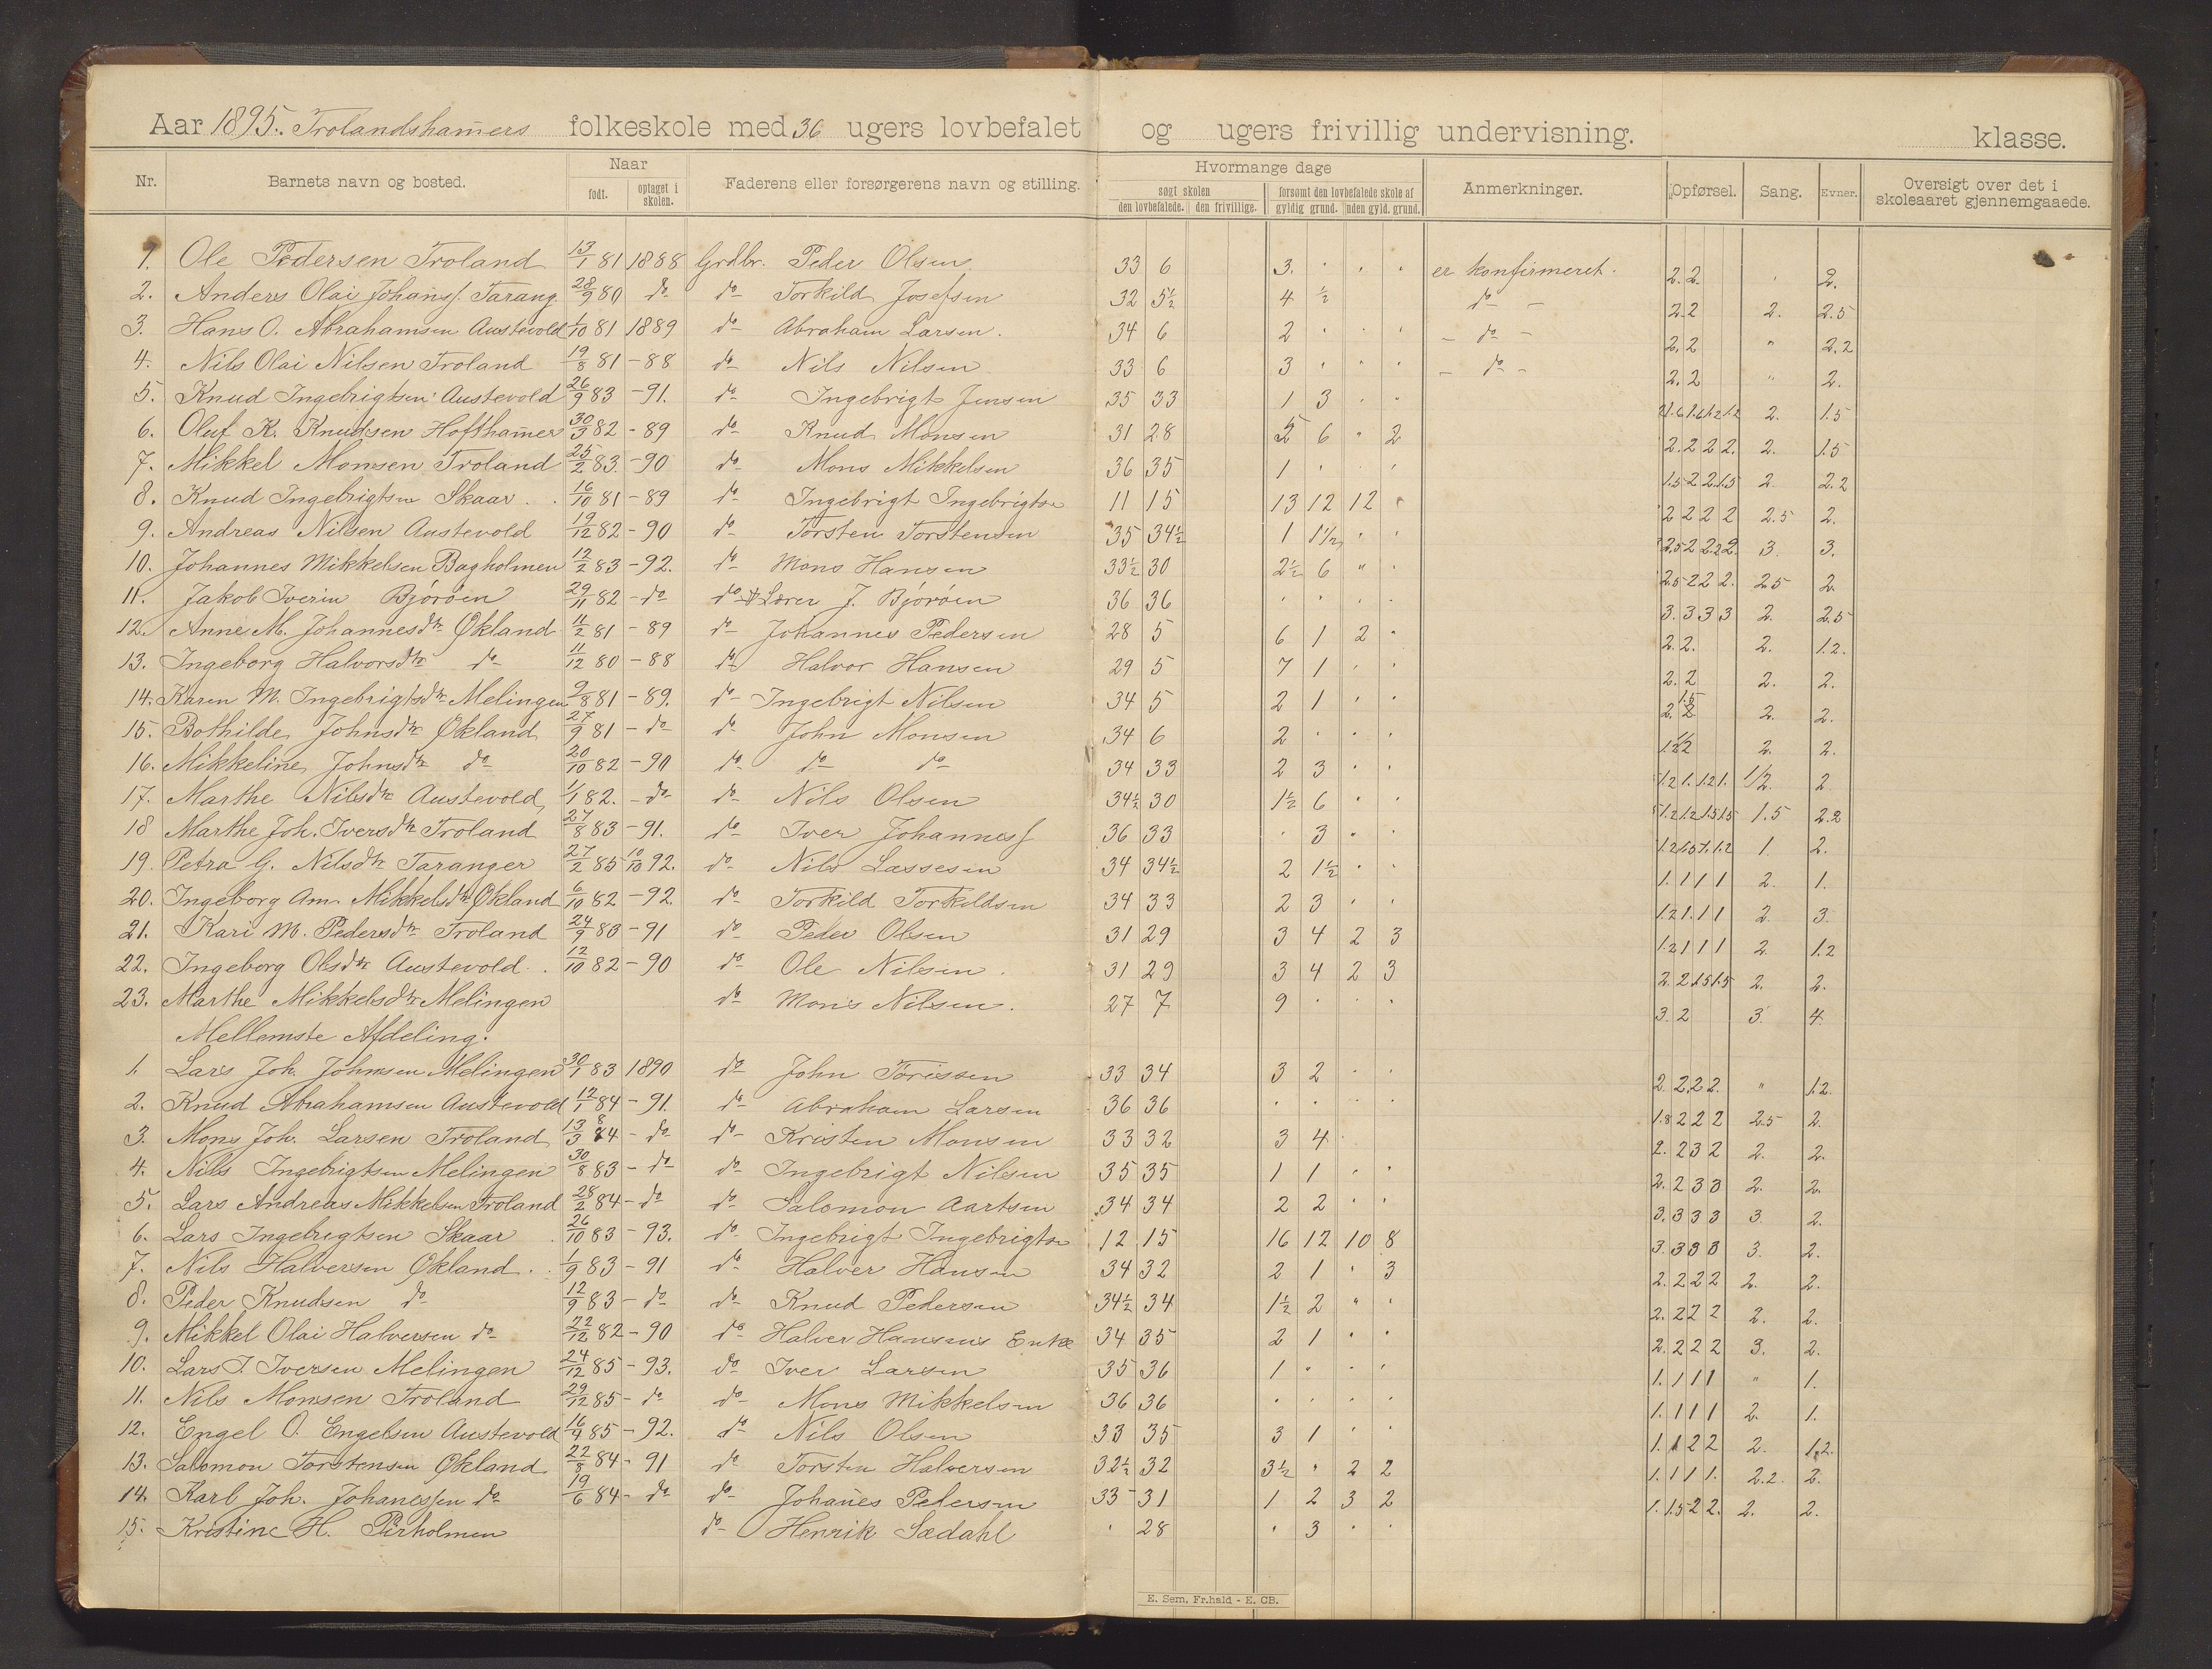 Aar 1895. Trolandshamers folkeskole med 36 ugers lovbefalet og ugers frivillig undervisning. klasse.
Nr. Barnets navn og bosted. Naar født. optaget i skolen. Faderens eller forsørgerens navn og stilling. Hvormange dage søgt skolen den lovbefalede. den frivillige. forsømt den lovbefalede skole af gyldig grund. uden gyld. grund. Anmerkninger. Opførsel. Sang. Evner. Oversigt over det i skoleaaret gjennemgaaede.
1. Ole Pedersen Troland 13/1 81 1888 Grdbr. Peder Olsen 33 6 3. " " " er konfirmeret. 2. 2. " 2.
2. Anders Olai Johanss. Tarang. 28/9 80 do do Torkild Josefsen 32 5½ 4 ½ do - 2.2 2. 2.5
3. Hans O. Abrahamsen Austevold 1/10 81 1889 do Abraham Larsen. 34 6 2 " " " - do - 2. 2 " 2.2
4. Nils Olai Nilsen Troland 19/8 81 - 88 do Nils Nilsen 33 6 3 " " " - do - 2. 2 " 2.
5. Knud Ingebrigtsen Austevold 26/9 83 - 91. do Ingebrigt Jensen 35 33 1 3 " " 2. 1.5
6. Oluf K. Knudsen Hofthamer 30/3 82 - 89 do Knud Monsen 31 28 5 6 " 2 2. 2 2 2. 2. 1.5
7. Mikkel Monsen Troland 25/2 83. - 90 do Mons Mikkelsen 36 35 1 " " 1.5 2 2 1.5 2 2.2
8. Knud Ingebrigtsen Skaar. 16/10 81 - 89 do Ingebrigt Ingebrigtsn 11 15 13 12 12 " 2 2 2 2 2.5 2.
9. Andreas Nilsen Austevold 19/12 82 - 90 do Torsten Torstensen 35 34½ 1 1½ " " 2.5 2 2.2 2. 3. 3.
10. Johannes Mikkelsen Bagholmen 12/2 83 - 92. do Mons Hansen 33½ 30 2½ 6 " " 2.5 2 2 2. 2.5 2.
11. Jakob Iverin Bjørøen 29/11 82 - do do Lærer J. Bjørøen 36 36 " " " " 3. 3 3 3 2. 2.5
12. Anne M. Johannesdtr Økland 11/2 81 - 89 do Johannes Pedersen 28 5 6 1 2 " 2. 2. 2. 1.2.
13. Ingeborg Halvorsdtr do 11/12 80 - 88 do Halvor Hansen 29 5 7 1 " " 2. 2 2. 2.
14. Karen M. Ingebrigtsdtr Melingen 9/8 81 - 89. do Ingebrigt Nilsen 34 5 2 1 " " 2. 1.5 2. 2.
15. Bothilde Johnsdtr Økland 27/9 81 - do do John Monsen 34 6 2 " " " 2. 2.
16. Mikkeline Johnsdtr do 20/10 82 - 90 do do do 34 33 2 3 " " 1.2 1. 1.2 1. 1/2. 2
17. Marthe Nilsdtr Austevold 1/1 82. - do do Nils Olsen 34½ 30 1½ 6 " " 1.2 1.2 1.5 1.5 1.5 2.2
18 Marthe Joh. Iversdtr Troland 27/8 83 - 91. do Iver Johanness 36 33 " 3 " " 1. 2.
19. Petra G. Nilsdtr Taranger 27/2 85 10/10 92. do Nils Lassesen 34 34½ 2 1½ " " 1. 1 1 1 2. 1.
20. Ingeborg Am. Mikkelsdtr Økland 6/10 82 - 92. do Torkild Torkildsen 34 33 2 3 " " 1.2 1. 1 1 2. 3.
21. Kari M. Pedersdtr Troland 24/9 83 - 91 do Peder Olsen 31 29 3 4 2 3 1.2 1 1 1 2. 1.2
22. Ingeborg Olsdtr Austevold. 12/10 82 - 90 do Ole Nilsen. 31 29 3 4 2 3 2. 2 1.5 1.5 2. 2.
23. Marthe Mikkelsdtr Melingen do Mons Nilsen. 27 7 9 " " " 3. 2 3. 4.
Mellemste Afdeling.
1. Lars Joh. Johnsen Melingen 30/1 83 1890 do John Tørissen 33 34 3 2 " " 2. 2. 2 2. " 1.2.
2. Knud Abrahamsen Austevold 12/1 84 - 91. do Abraham Larsen 36 36 " " " " 1.8 2 2 2 2.5 2.
3. Mons Joh. Larsen Troland 13/3 84 - do do Kristen Monsen 33 32 3 4 " 2. 2 3 2 2. 2.
4. Nils Ingebrigtsen Melingen 30/8 83 - do do Ingebrigt Nilsen 35 35 1 1 " " 2. 2 3 3 2. 2.
5. Lars Andreas Mikkelsen Troland 28/2 84 - do do Salomon Aartsen 34 34 2 2 " " 3. 3 3 3 3. 2.
6. Lars Ingebrigtsen Skaar 26/10 83 - 93. do Ingebrigt Ingebrigtsn 12 15 16 12 10 8 3. 3 3 3 3. 2.
7. Nils Halversen Økland. 1/9 83 - 91 do Halver Hansen 34 32 2 1 " 3 2. 2 2 2 2. 2.
8. Peder Knudsen do 12/9 83 - do do Knud Pedersen 34½ 34 1½ 2 " " 2. 2 2 2 2. 2.
9. Mikkel Olai Halversen do 22/12 82 - 90 do Halver Hansens Enke 34 35 2 1 " " 2. 2 2 2 3. 2.
10. Lars I. Iversen Melingen 24/12 85 - 93. do Iver Larsen 35 36 1 " " " 1. 1 1 1 " 1.
11. Nils Monsen Troland 29/12 85 - do do Mons Mikkelsen 36 36 " " " " 1. 1 1 1 2. 1.
12. Engel O. Engelsen Austevold 16/4 85 - 92. do Nils Olsen 33 35 3 1 " " 1. 1 2 2 2. 1.2.
13. Salomon Torstensen Økland 22/8 84 - 91 do Torsten Halversen 32½ 32 3½ " 2 2 1. 1 1 1. 2.2. 2.
14. Karl Joh. Johanessen do 19/6 84 - do do Johanes Pedersen 33 31 1 2 3 2 1. 1.5 2 2. 2. 2.
15. Kristine H. Pirholmen do Henrik Sædahl " 28 " 3 " "
E. Sem, Fr.hald - E. CB.